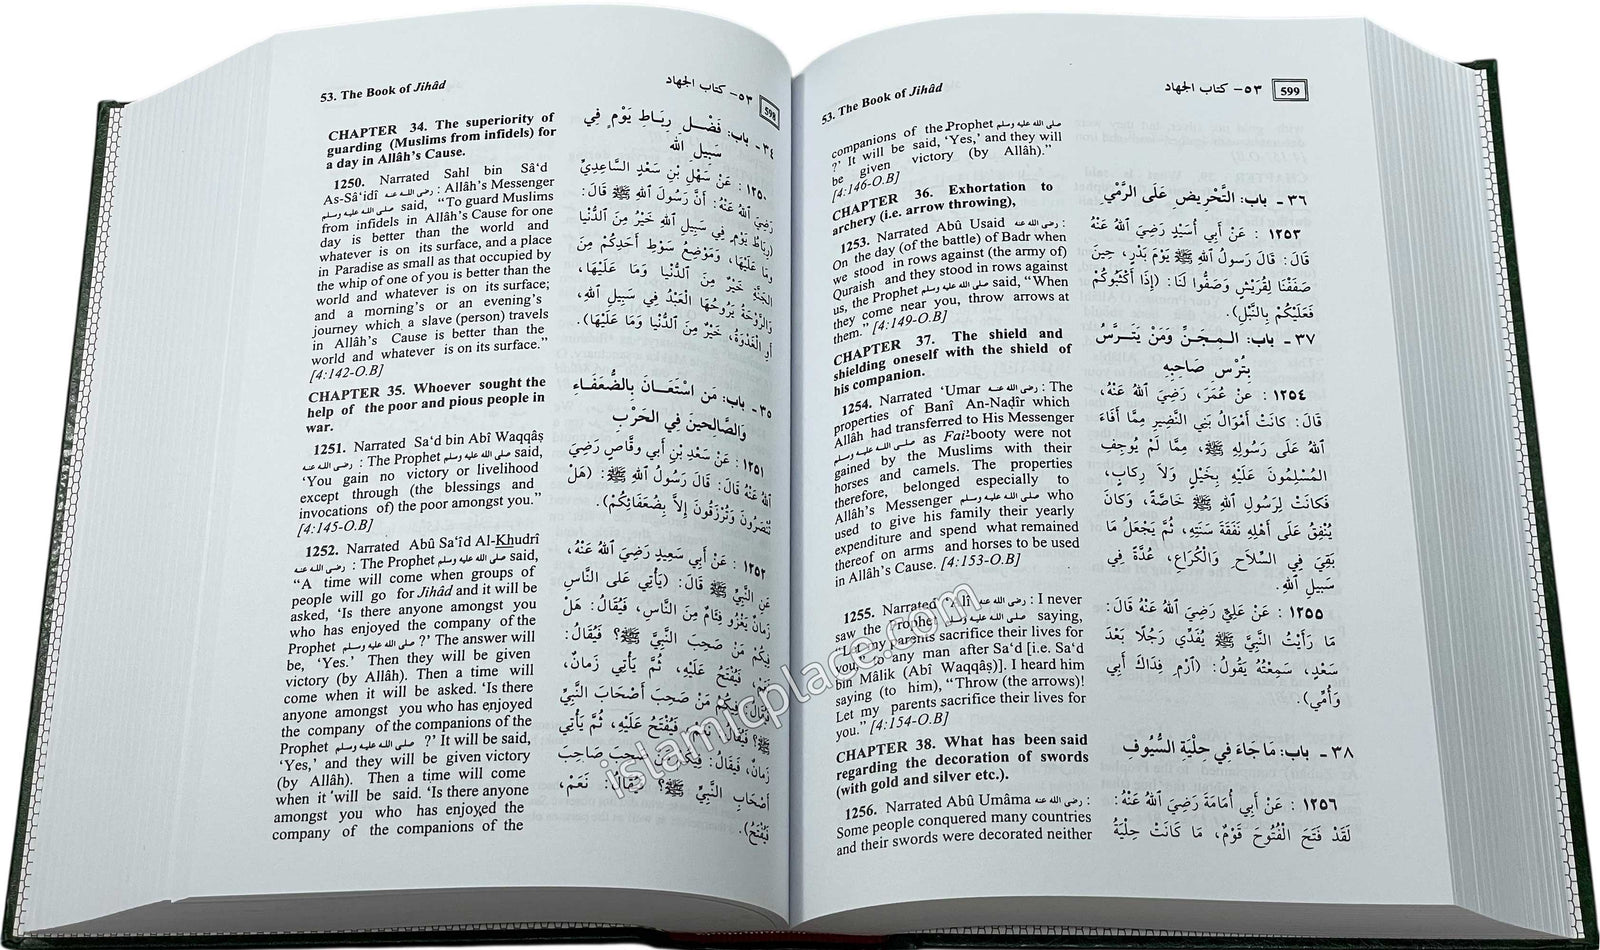 53. The Book of Jihâd
٥٣- كتاب الجهاد
598
CHAPTER 34. The superiority of
guarding (Muslims from infidels) for
a day in Allâh's Cause.
1250. Narrated Sahl bin Sâ'd
As-Sâ'idî رضى الله عنه : Allâh's Messenger
صلى الله عليه وسلم said, "To guard Muslims
from infidels in Allâh's Cause for one
day is better than the world and
whatever is on its surface, and a place
in Paradise as small as that occupied by
the whip of one of you is better than the
world and whatever is on its surface;
and a morning's or an evening's
journey which a slave (person) travels
in Allâh's Cause is better than the
world and whatever is on its surface."
[4:142-O.B]
CHAPTER 35. Whoever sought the
help of the poor and pious people in
war.
1251. Narrated Sa'd bin Abî Waqqâṣ
رضى الله عنه : The Prophet صلى الله عليه وسلم said,
'You gain no victory or livelihood
except through (the blessings and
invocations of) the poor amongst you."
[4:145-O.B]
1252. Narrated Abû Sa'îd Al-Khudrî
رضى الله عنه : The Prophet صلى الله عليه وسلم said,
"A time will come when groups of
people will go for Jihâd and it will be
asked, 'Is there anyone amongst you
who has enjoyed the company of the
Prophet صلى الله عليه وسلم ?' The answer will
be, 'Yes.' Then they will be given
victory (by Allâh). Then a time will
come when it will be asked. 'Is there
anyone amongst you who has enjoyed
the company of the companions of the
Prophet صلى الله عليه وسلم ?' It will be said,
'Yes,' and they will be given victory
(by Allâh). Then a time will come
when it will be said. 'Is there anyone
amongst you who has enjoyed the
company of the companions of the
٣٤ - باب: فَضْلِ رِبَاطِ يَوْمٍ فِي
سَبِيلِ اللَّه
١٢٥٠ : عَنْ سَهْلِ بْنِ سَعْدٍ السَّاعِدِيِّ
رَضِيَ اللهُ عَنْهُ: أَنَّ رَسُولَ اللهِ ﷺ قَالَ:
(رِبَاطُ يَوْمٍ فِي سَبِيلِ اللهِ خَيْرٌ مِنَ الدُّنْيَا
وَمَا عَلَيْهَا، وَمَوْضِعُ سَوْطِ أَحَدِكُمْ مِنَ
الجَنَّةِ خَيْرٌ مِنَ الدُّنْيَا وَمَا عَلَيْهَا،
وَالرَّوْحَةُ يَرُوحُهَا الْعَبْدُ فِي سَبِيلِ اللهِ،
أَوِ الْغَدْوَةُ، خَيْرٌ مِنَ الدُّنْيَا وَمَا عَلَيْهَا).
٣٥ - باب: مَنِ اسْتَعَانَ بِالضُّعَفَاءِ
وَالصَّالِحِينَ فِي الحَرْبِ
١٢٥١ : عَنْ سَعْدِ بْنِ أَبِي وَقَّاصٍ رَضِيَ
اللهُ عَنْهُ قَالَ: قَالَ رَسُولُ اللهِ ﷺ: (هَلْ
تُنْصَرُونَ وَتُرْزَقُونَ إِلَّا بِضُعَفَائِكُمْ).
١٢٥٢ : عَنْ أَبِي سَعِيدٍ رَضِيَ اللهُ عَنْهُ،
عَنِ النَّبِيِّ ﷺ قَالَ: (يَأْتِي عَلَى النَّاسِ
زَمَانٌ يَغْزُو فِئَامٌ مِنَ النَّاسِ، فَيُقَالُ: هَلْ
فِيكُمْ مَنْ صَحِبَ النَّبِيَّ ﷺ؟ فَيُقَالُ:
نَعَمْ، فَيُفْتَحُ عَلَيْهِ، ثُمَّ يَأْتِي زَمَانٌ،
فَيُقَالُ: فِيكُمْ مَنْ صَحِبَ أَصْحَابَ النَّبِيِّ
ﷺ؟ فَيُقَالُ نَعَمْ، فَيُفْتَحُ عَلَيْهِ، ثُمَّ يَأْتِي
زَمَانٌ، فَيُقَالُ: فِيكُمْ مَنْ صَحِبَ صَاحِبَ
أَصْحَابِ النَّبِيِّ ﷺ؟ فَيُقَالُ: نَعَمْ،
فَيُفْتَحُ).
53. The Book of Jihâd
٥٣- كتاب الجهاد
599
companions of the Prophet صلى الله عليه وسلم
?' It will be said, 'Yes,' and they will
be given victory (by Allâh)."
[4:146-O.B]
CHAPTER 36. Exhortation to
archery (i.e. arrow throwing),
1253. Narrated Abû Usaid رضى الله عنه :
On the day (of the battle) of Badr when
we stood in rows against (the army of)
Quraish and they stood in rows against
us, the Prophet صلى الله عليه وسلم said, "When
they come near you, throw arrows at
them." [4:149-O.B]
CHAPTER 37. The shield and
shielding oneself with the shield of
his companion.
1254. Narrated 'Umar رضى الله عنه : The
properties of Banî An-Naḍîr which
Allâh had transferred to His Messenger
صلى الله عليه وسلم as Fai' booty were not
gained by the Muslims with their
horses and camels. The properties
therefore, belonged especially to
Allâh's Messenger صلى الله عليه وسلم who
used to give his family their yearly
expenditure and spend what remained
thereof on arms and horses to be used
in Allâh's Cause. [4:153-O.B]
1255. Narrated 'Alî رضى الله عنه : I never
saw the Prophet صلى الله عليه وسلم saying,
"Let my parents sacrifice their lives for
you," to any man after Sa'd [i.e. Sa'd
bin Mâlik (Abî Waqqâṣ)]. I heard him
saying (to him), "Throw (the arrows)!
Let my parents sacrifice their lives for
you." [4:154-O.B]
CHAPTER 38. What has been said
regarding the decoration of swords
(with gold and silver etc.).
1256. Narrated Abû Umâma رضى الله عنه :
Some people conquered many countries
and their swords were decorated neither
٣٦ - باب: التَّحْرِيضِ عَلَى الرَّمْيِ
١٢٥٣ : عَنْ أَبِي أُسَيْدٍ رَضِيَ اللهُ عَنْهُ
قَالَ: قَالَ رَسُولُ اللهِ ﷺ يَوْمَ بَدْرٍ، حِينَ
صَفَفْنَا لِقُرَيْشٍ وَصَفُّوا لَنَا: (إِذَا أَكْثَبُوكُمْ
فَعَلَيْكُمْ بِالنَّبْلِ).
٣٧ - باب: الـمِجَنِّ وَمَنْ يَتَتَرَّسُ
بِتُرْسِ صَاحِبِهِ
١٢٥٤ : عَنْ عُمَرَ، رَضِيَ اللهُ عَنْهُ،
قَالَ: كَانَتْ أَمْوَالُ بَنِي النَّضِيرِ مِمَّا أَفَاءَ
اللهُ عَلَى رَسُولِهِ ﷺ، مِمَّا لَمْ يُوجِفِ
المُسْلِمُونَ عَلَيْهِ بِخَيْلٍ وَلَا رِكابٍ،
فَكَانَتْ لِرَسُولِ اللهِ ﷺ خَاصَّةً، وَكَانَ
يُنْفِقُ عَلَى أَهْلِهِ نَفَقَةَ سَنَتِهِ، ثُمَّ يَجْعَلُ مَا
بَقِيَ فِي السِّلَاحِ وَالْكُرَاعِ، عُدَّةً فِي
سَبِيلِ اللهِ.
١٢٥٥ : عَنْ عَلِيٍّ رَضِيَ اللهُ عَنْهُ قَالَ:
مَا رَأَيْتُ النَّبِيَّ ﷺ يُفَدِّي رَجُلًا بَعْدَ
سَعْدٍ، سَمِعْتُهُ يَقُولُ: (ارْمِ فِدَاكَ أَبِي
وَأُمِّي).
٣٨ - باب: مَا جَاءَ فِي حِلْيَةِ السُّيُوفِ
١٢٥٦ : عَنْ أَبِي أُمَامَةَ رَضِيَ اللهُ عَنْهُ:
لَقَدْ فَتَحَ الْفُتُوحَ قَوْمٌ، مَا كَانَتْ حِلْيَةُ
islamicplace.com